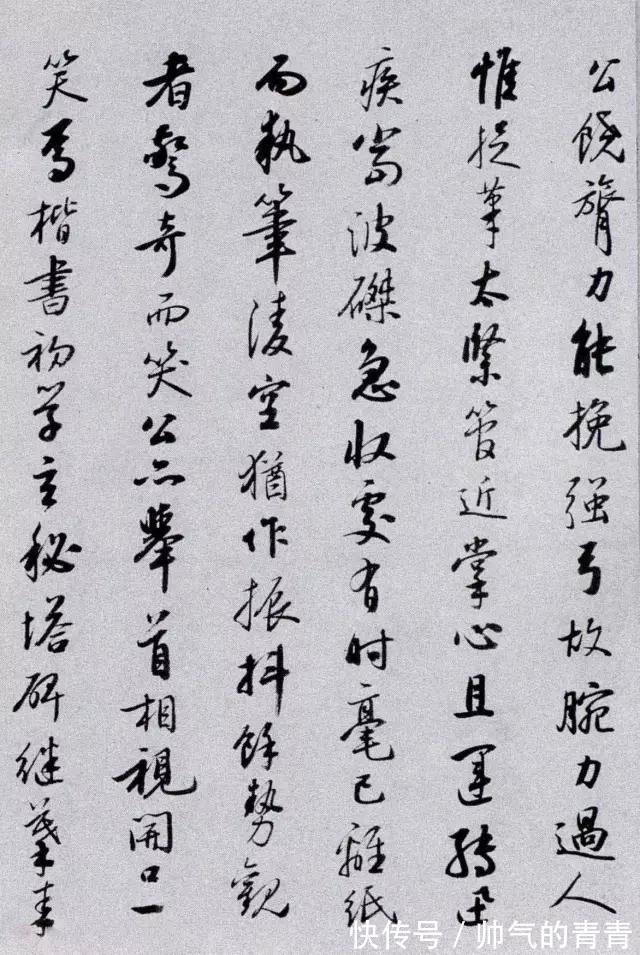 公饒膂力能挽強弓故腕力過人
惟捉筆太緊管近掌心且運轉迅
疾當波磔急收處有時毫已離紙
而執筆淩空猶作振抖餘勢觀
者驚奇而笑公亦舉首相視開口一
笑焉楷書初學玄秘塔碑継摹
快传号 / 帅气的青青